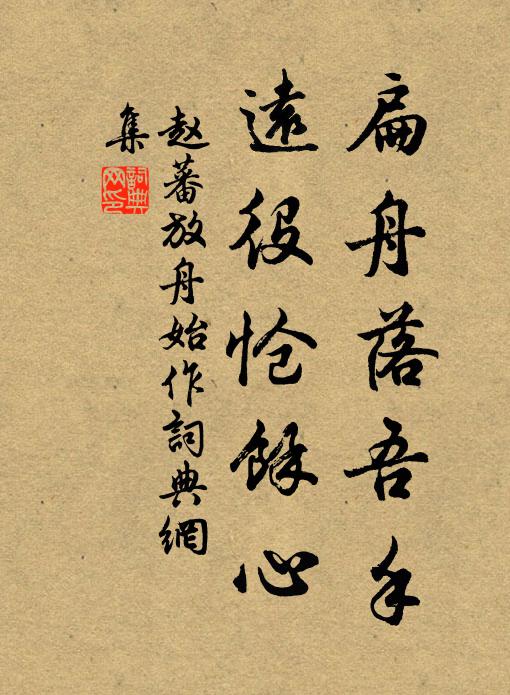 扁舟落吾手
遠役愴餘心
赵蕃放舟始作詞典網
集
詞典网印